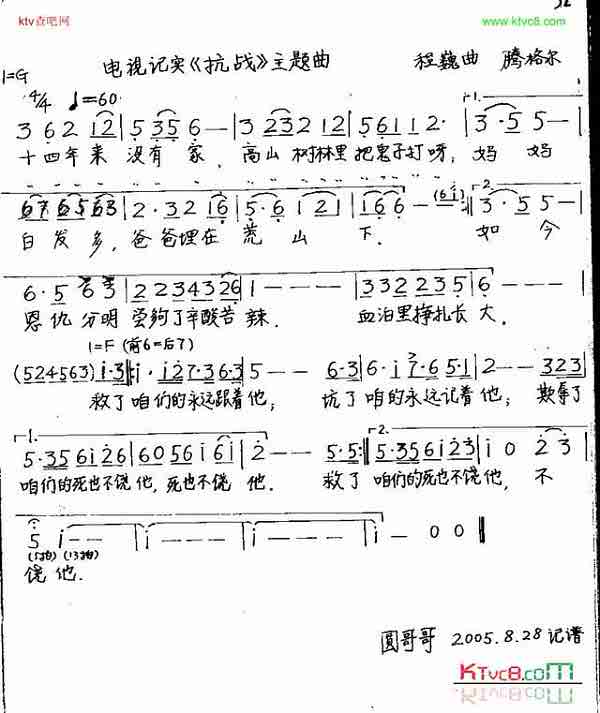 ktv查吧网
www.ktvc8.com
32
电视记实《抗战》主题曲 程巍曲 腾格尔
1=G
4/4 ♩=60
3 6 2 1 2 | 5 3 5 6 — | 3 3 2 3 2 1 2 | 5 6 1 1 2· | 1. 3· 5 5 — |
十四年来 没有 家, 高山 树林里 把鬼子打呀; 妈 妈
2· 3 2 1 6 | 5· 6 1 2 | 1 6 6 — :| 2. 3· 5 5 — |
白发多, 爸爸埋在 荒 山 下. 如 今
6· 5 6 3 | 2 2 3 4 3 2 6 | 1 — — — | 3 3 2 2 3 5 | 6 — — — |
恩仇 分明 尝够了辛酸苦 辣. 血泊里挣扎长 大.
1=F (前6=后7)
(5 2 4 5 6 3) i·3 ‖: i· i 2 7·3 6·3 | 5 — — 6·3 | 6· i 7·6 5·1 | 2 — — 3 2 3 |
救了 咱们的永远跟着他; 坑了 咱的永远记着他; 欺辱了
1. 5·3 5 6 i 2 6 | 6 0 5 6 i 6 i | 2 — — 5·5 :| 2. 5·3 5 6 i 2 3 | i 0 2 3 |
咱们的死也不饶他, 死也不饶 他. 救了 咱们的死也不饶他, 不
5 i — — | i — — — | i — — — | i — 0 0 ‖
(13拍)
饶 他.
圆哥哥 2005.8.28 记谱
KTvc8.com